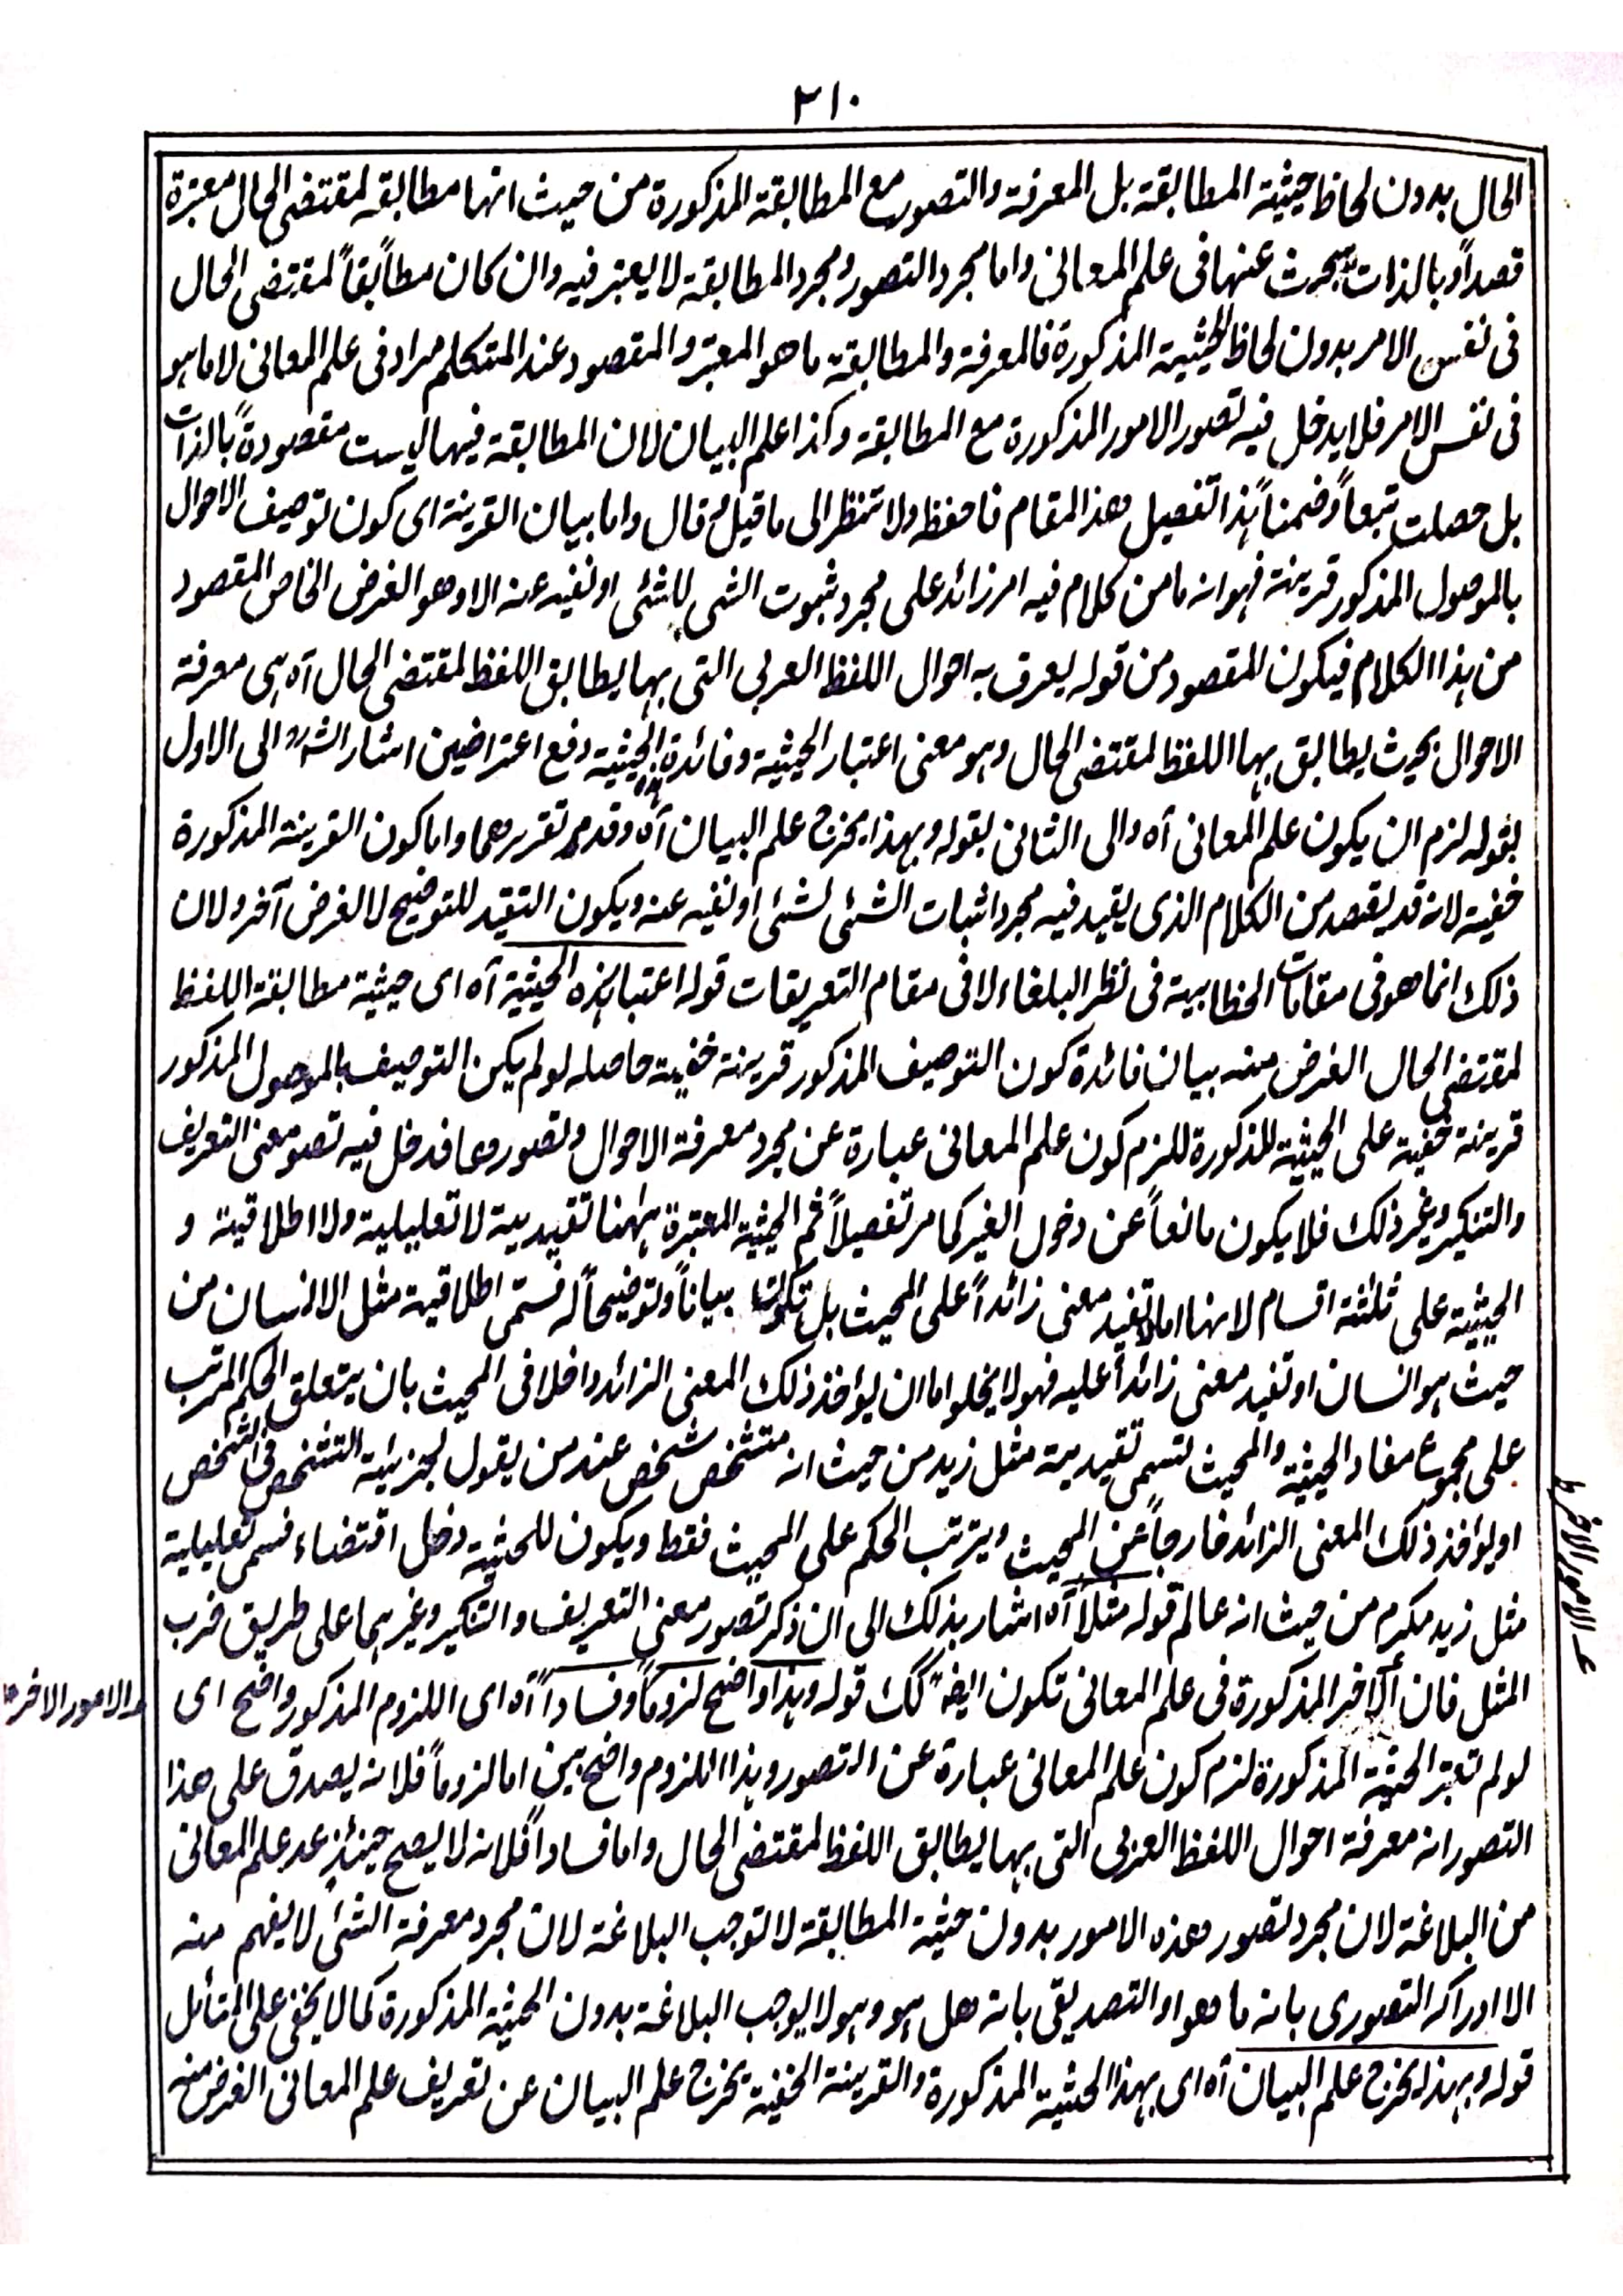 ٣١٠
الحال بدون لحاظ حيثية المطابقة بل المعرفة والتصور مع المطابقة المذكورة من حيث انها مطابقة لمقتضى الحال معتبرة
قصداً وبالذات يبحث عنها فى علم المعانى واما مجرد التصور ومجرد المطابقة لا يعتبر فيه وان كان مطابقاً لمقتضى الحال
فى نفس الامر بدون لحاظ الحيثية المذكورة فالمعرفة والمطابقة ما هو المعتبر والمقصود عند المتكلم مراد فى علم المعانى لا ما ہو
فى نفس الامر فلا يدخل فيه تصور الامور المذكورة مع المطابقة وكذا علم البيان لان المطابقة فيها ليست مقصودةً بالذات
بل حصلت تبعاً وضمناً ہذا تفصيل هذا المقام فاحفظ ولا تنظر الى ما قيل وقال واما بيان القرينة اى كون توصيف الاحوال
بالموصول المذكور قرينة فہو انه ما من كلام فيه امر زائد على مجرد ثبوت الشى للشئى او نفيه عنه الا وهو الغرض الخاص المقصود
من ہذا الكلام فيكون المقصود من قوله يعرف به احوال اللفظ العربى التى بہا يطابق اللفظ لمقتضى الحال آه ہى معرفة
الاحوال بحيث يطابق بہا اللفظ لمقتضى الحال وہو معنى اعتبار الحيثية وفائدة ہذه الحيثية دفع اعتراضين اشار الشارح الى الاول
بقوله لزم ان يكون علم المعانى آه والى الثانى بقوله وبہذا يخرج علم البيان آه وقد مر تقريرهما واما كون القرينة المذكورة
خفية لانه قد يقصد من الكلام الذى يقيد فيه مجرد اثبات الشئى لشئى او نفيه عنه ويكون التقيد للتوضيح لا لغرض آخر ولان
ذلك انما هو فى مقامات الخطابية فى نظر البلغاء لا فى مقام التعريفات قوله اعتبار ہذه الحيثية آه اى حيثية مطابقة اللفظ
لمقتضى الحال الغرض منه بيان فائدة كون التوصيف المذكور قرينة خفية حاصله لو لم يكن التوصيف بالموصول المذكور
قرينة خفية على الحيثية المذكورة للزم كون علم المعانى عبارة عن مجرد معرفة الاحوال وتصورها فدخل فيه تصور معنى التعريف
والتنكير وغير ذلك فلا يكون مانعاً عن دخول الغير كما مر تفصيلاً ثم الحيثية المعتبرة ہہنا تقييدية لا تعليلية ولا اطلاقية و
الحيثية على ثلثة اقسام لانها اما لا تفيد معنى زائداً على المحيث بل تكون بياناً وتوضيحاً له فتسمى اطلاقية مثل الانسان من
حيث ہو انسان او تفيد معنى زائداً عليه فهو لا يخلو اما ان يؤخذ ذلك المعنى الزائد داخلا فى المحيث بان يتعلق الحكم المرتب
على مجموع مفاد الحيثية والمحيث تسمى تقييدية مثل زيد من حيث انه متشخص شخص عند من يقول بجزئية التشخص فى الشخص
او يؤخذ ذلك المعنى الزائد خارجاً عن المحيث ويترتب الحكم على المحيث فقط ويكون للحيثية دخل اقتضاء فتسمى تعليلية
مثل زيد مكرم من حيث انه عالم قوله مثلاً آه اشار بذلك الى ان ذكر تصور معنى التعريف والتنكير وغيرہما على طريق ضرب
المثل فان الاخير المذكورة فى علم المعانى تكون ايضاً كك قوله وہذا واضح لزوماً وفساداً آه اى اللزوم المذكور واضح اى
لو لم تعتبر الحيثية المذكورة لزم كون علم المعانى عبارة عن التصور وہذا اللزوم واضح بين اما لزوماً فلانه يصدق على هذا
التصور انه معرفة احوال اللفظ العربى التى بہا يطابق اللفظ لمقتضى الحال واما فساداً فلانه لا يصح حينئذٍ عد علم المعانى
من البلاغة لان مجرد تصور هذه الامور بدون حيثية المطابقة لا توجب البلاغة لان مجرد معرفة الشئ لا يفهم منه
الا ادراكه التصورى بانه ما هو او التصديقى بانه هل ہو وہو لا يوجب البلاغة بدون الحيثية المذكورة كما لا يخفى على المتأمل
قوله وبہذا يخرج علم البيان آه اى بہذا الحيثية المذكورة والقرينة الخفية يخرج علم البيان عن تعريف علم المعانى الغرض منه
الامور الاخر
الامور الاخر